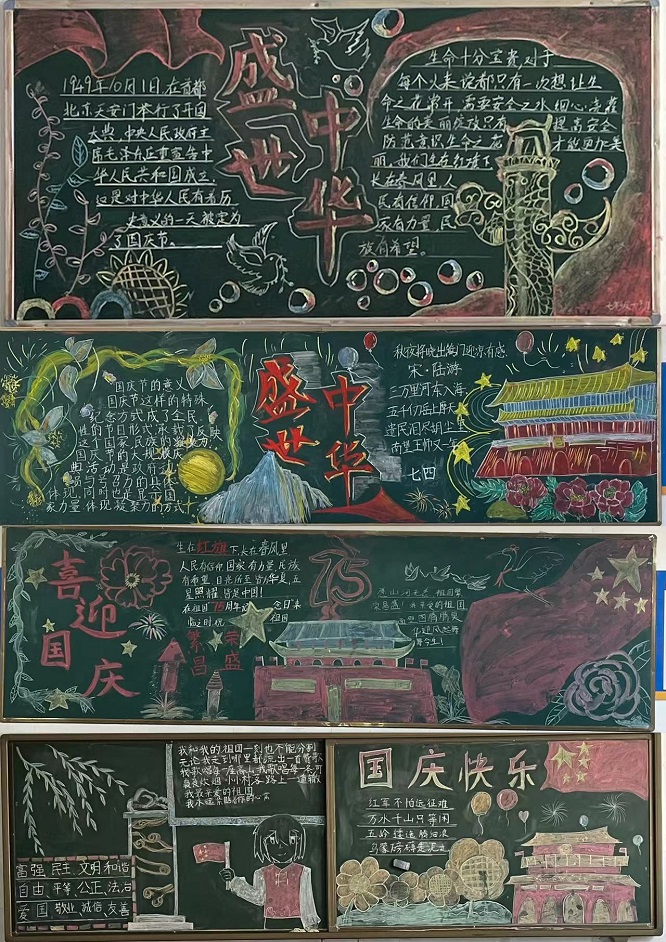 盛世
中华
1949年10月1日在首都
北京天安门举行了开国
大典,中央人民政府主
席毛泽东庄重宣告中
华人民共和国成立,
这是对中华人民有着历
史意义的一天被定为
了国庆节。
生命十分宝贵对于
每个人来说都只有一次想让生
命之花常开,需要安全之水细心浇灌
生命的美丽绽放只有 提高安全
防范意识,生命之花 才能更加美
丽,我们生在红旗下
长在春风里人
民有信仰国
家有力量民
族有希望。
国庆节的意义
国庆节这样的特殊
纪念方式成了全民
性的节日形式承载了反映
这个国家民族的凝
国庆节的大规模庆
典活动是政府动
员与号召力的具体
体现,同时也是显示国
家力量体现凝聚力的方式
盛世
中华
秋夜将晓出篱门迎凉有感
宋·陆游
三万里河东入海
五千仞岳上摩天
遗民泪尽胡尘里
南望王师又一年
七四
喜迎
国庆
生在红旗下长在春风里
人民有信仰国家有力量民族
有希望 目光所至皆为华夏五
星闪耀皆是中国!
在祖国75周年
繁昌
荣盛
75
我和我的祖国一刻也不能分割
无论我走到哪里都流出一首赞歌
我歌唱每一座高山我歌唱每一条河
袅袅炊烟小小村落路上一道辙
我最亲爱的祖国
富强 民主 文明 和谐
自由 平等 公正 法治
爱国 敬业 诚信 友善
国庆快乐
红军不怕远征难
万水千山只等闲
五岭逶迤腾细浪
乌蒙磅礴走泥丸